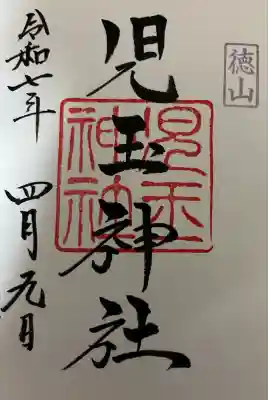 徳山
児玉神社
児玉神社
令和七年
四月九日